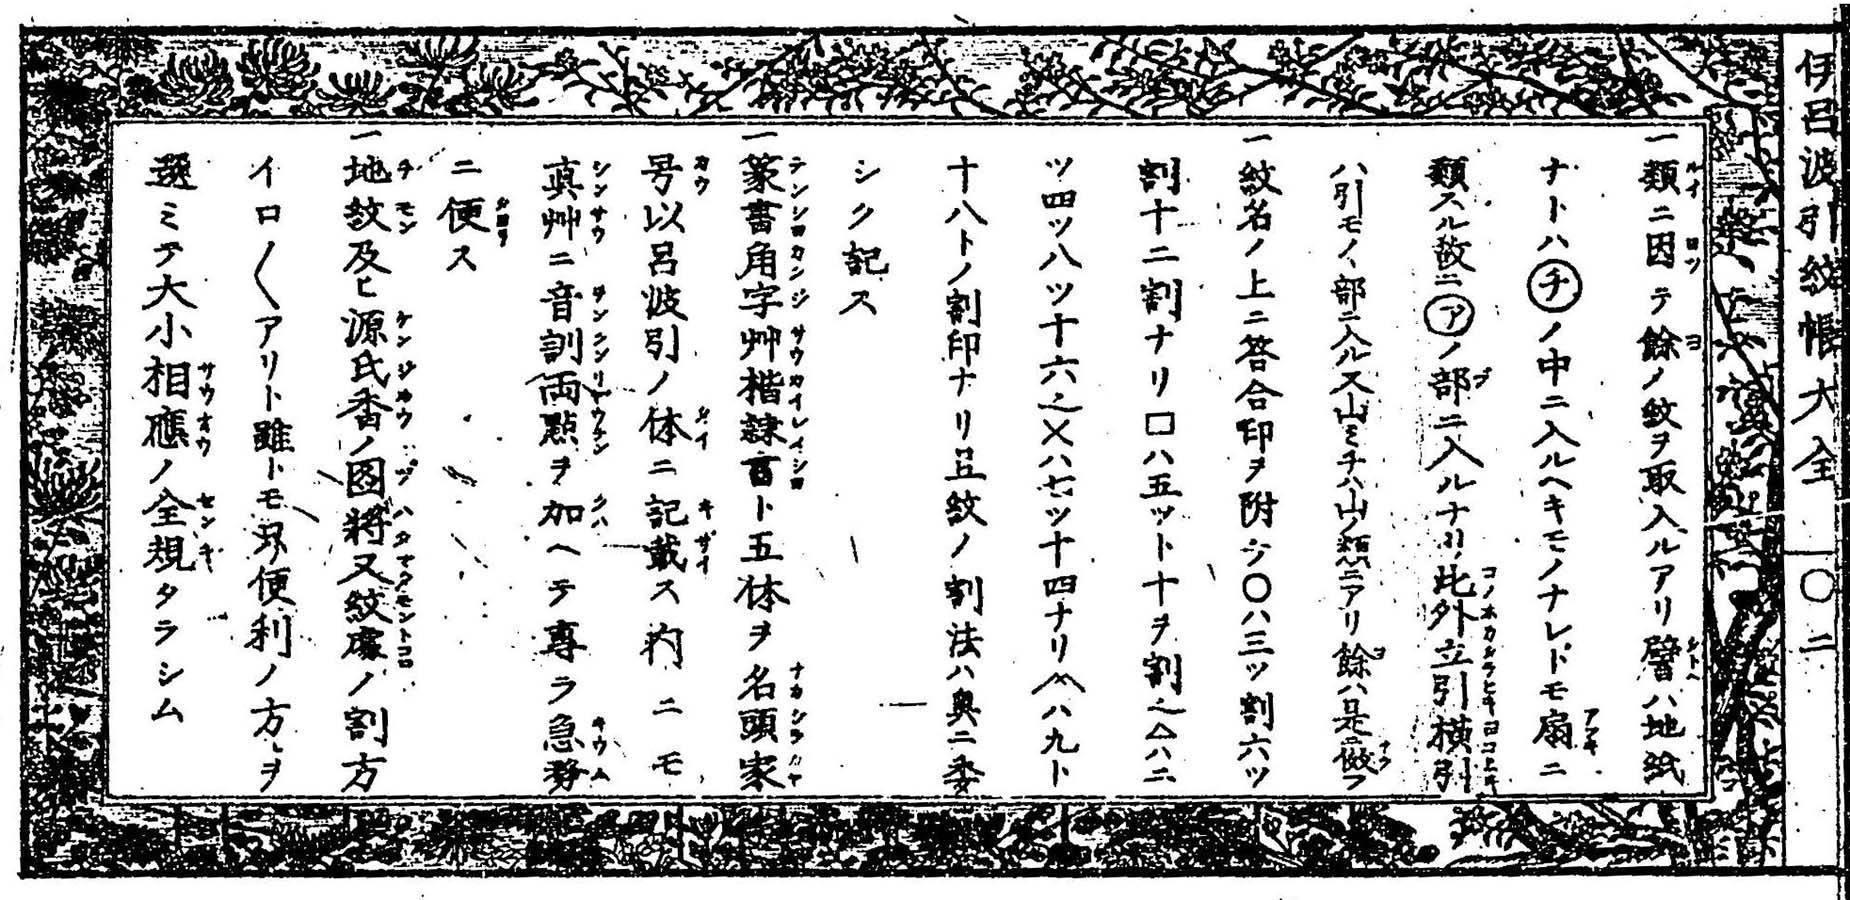 伊呂波引紋帳大全 〇二
一類ニ因テ餘ノ紋ヲ取入ルアリ譬ハ地紙
ナトハ㋠ノ中ニ入ルヘキモノナレドモ扇ニ
類スル故ニ㋐ノ部ニ入ルナリ此外立引横引
ハ引モノヽ部ニ入ル又山ミチハ山ノ類ニアリ餘ハ是ニ傚フ
一紋名ノ上ニ答合印ヲ附ケ〇ハ三ツ割六ツ
割十二割ナリ□ハ五ット十ヲ割△ハ二
ツ四ツ八ツ十六 ×ハ七ツ十四ナリ ハ九ト
十八トノ割印ナリ且紋ノ割法ハ奥ニ委
シク記ス
一篆書角字艸楷隷書ト五体ヲ名頭家
号以呂波引ノ体ニ記載ス ニモ
真艸ニ音訓両點ヲ加ヘテ專ラ急務
ニ便ス
一地紋及ヒ源氏香ノ図将又紋處ノ割方
イロ〱アリト雖トモ 便利ノ方ヲ
選ミテ大小相應ノ全規タラシム